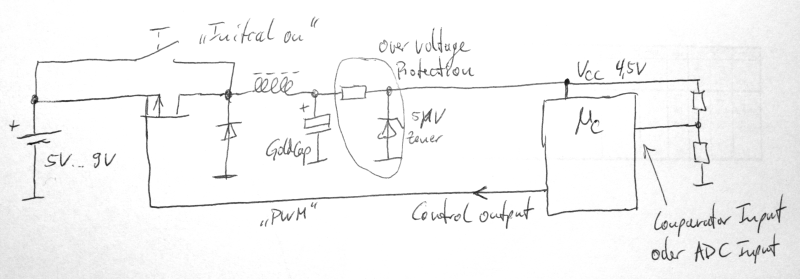 „Initial on"
over voltage
Protection
Vcc 4,5V
+
+
5V... 9V
GoldCap
Zener
µC
„PWM"
Control output
Comparator Input
oder ADC Input